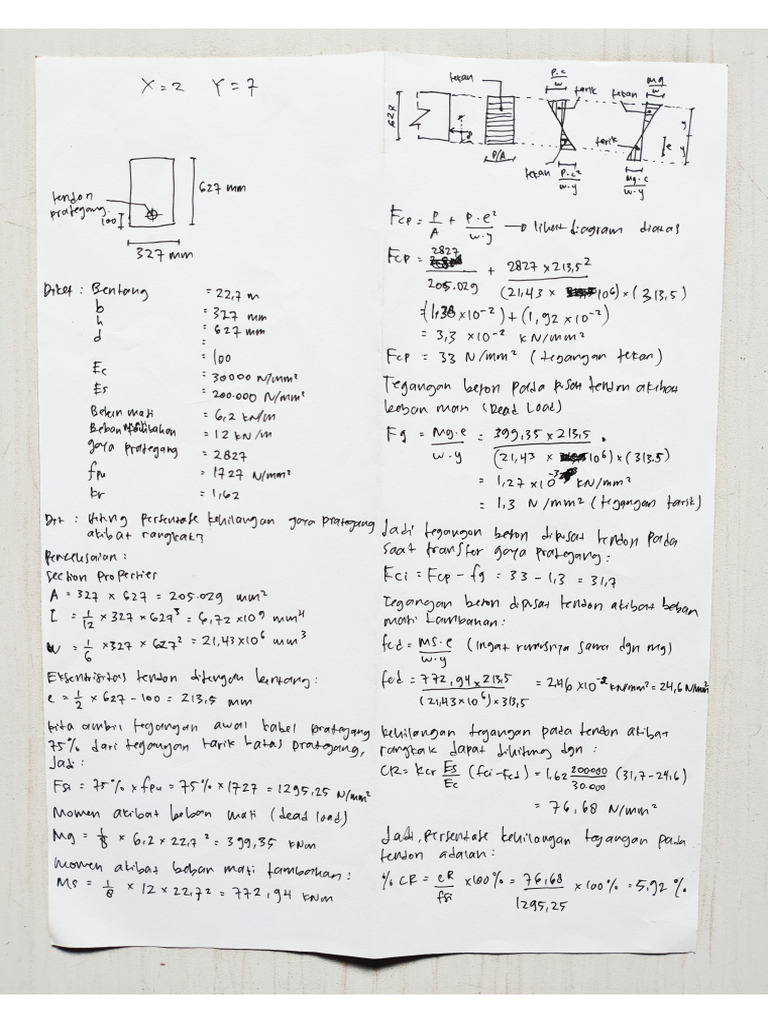 X = 2 Y = 7
tendon
prategang
100
627 mm
327 mm
Diket : Bentang = 22,7 m
b = 327 mm
h = 627 mm
d :
= 100
Ec = 30000 N/mm²
Es = 200.000 N/mm²
Beban mati = 6,2 kN/m
Beban tambahan = 12 kN/m
gaya prategang = 2827
fpu = 1727 N/mm²
kr = 1,62
Dit : Hitung persentase kehilangan gaya prategang
akibat rangkak?
Penyelesaian :
Section Properties
A = 327 × 627 = 205.029 mm²
I = 1/12 × 327 × 627³ = 6,72 × 10⁹ mm⁴
W = 1/6 × 327 × 627² = 21,43 × 10⁶ mm³
Eksentrisitas tendon ditengah bentang :
e = 1/2 × 627 - 100 = 213,5 mm
kita ambil tegangan awal kabel prategang
75% dari tegangan tarik batas prategang,
Jadi :
Fsi = 75% × fpu = 75% × 1727 = 1295,25 N/mm²
Momen akibat beban mati (dead load)
Mg = 1/8 × 6,2 × 22,7² = 399,35 kNm
Momen akibat beban mati tambahan :
Ms = 1/8 × 12 × 22,7² = 772,94 kNm
tekan P.e/w tarik tekan Mg/w
627
P/A
tekan P.e²/w.y tarik Mg.e/w.y
e y y
Fcp = P/A + P.e²/w.y → lihat diagram diatas
Fcp = 2827/205.029 + 2827 × 213,5²/(21,43 × 10⁶) × (313,5)
= (1,38 × 10⁻²) + (1,92 × 10⁻²)
= 3,3 × 10⁻² kN/mm²
Fcp = 33 N/mm² (tegangan tekan)
Tegangan beton pada pusat tendon akibat
beban mati (Dead Load)
Fg = Mg.e/w.y = 399,35 × 213,5/(21,43 × 10⁶) × (313.5)
= 1,27 × 10⁻³ kN/mm²
= 1,3 N/mm² (tegangan tarik)
Jadi tegangan beton dipusat tendon pada
saat transfer gaya prategang :
Fci = Fcp - fg = 33 - 1,3 = 31,7
Tegangan beton dipusat tendon akibat beban
mati tambahan :
fcd = Ms.e/w.y (ingat rumusnya sama dgn mg)
fcd = 772,94 × 213,5/(21,43 × 10⁶) × 313,5 = 2,46 × 10⁻² kN/mm² = 24,6 N/mm²
kehilangan tegangan pada tendon akibat
rangkak dapat dihitung dgn :
CR = Kcr Es/Ec (fci - fcd) = 1,62 200000/30.000 (31,7 - 24,6)
= 76,68 N/mm²
Jadi, Persentase kehilangan tegangan pada
tendon adalah :
% CR = CR/fsi × 100% = 76,68/1295,25 × 100% = 5,92 %